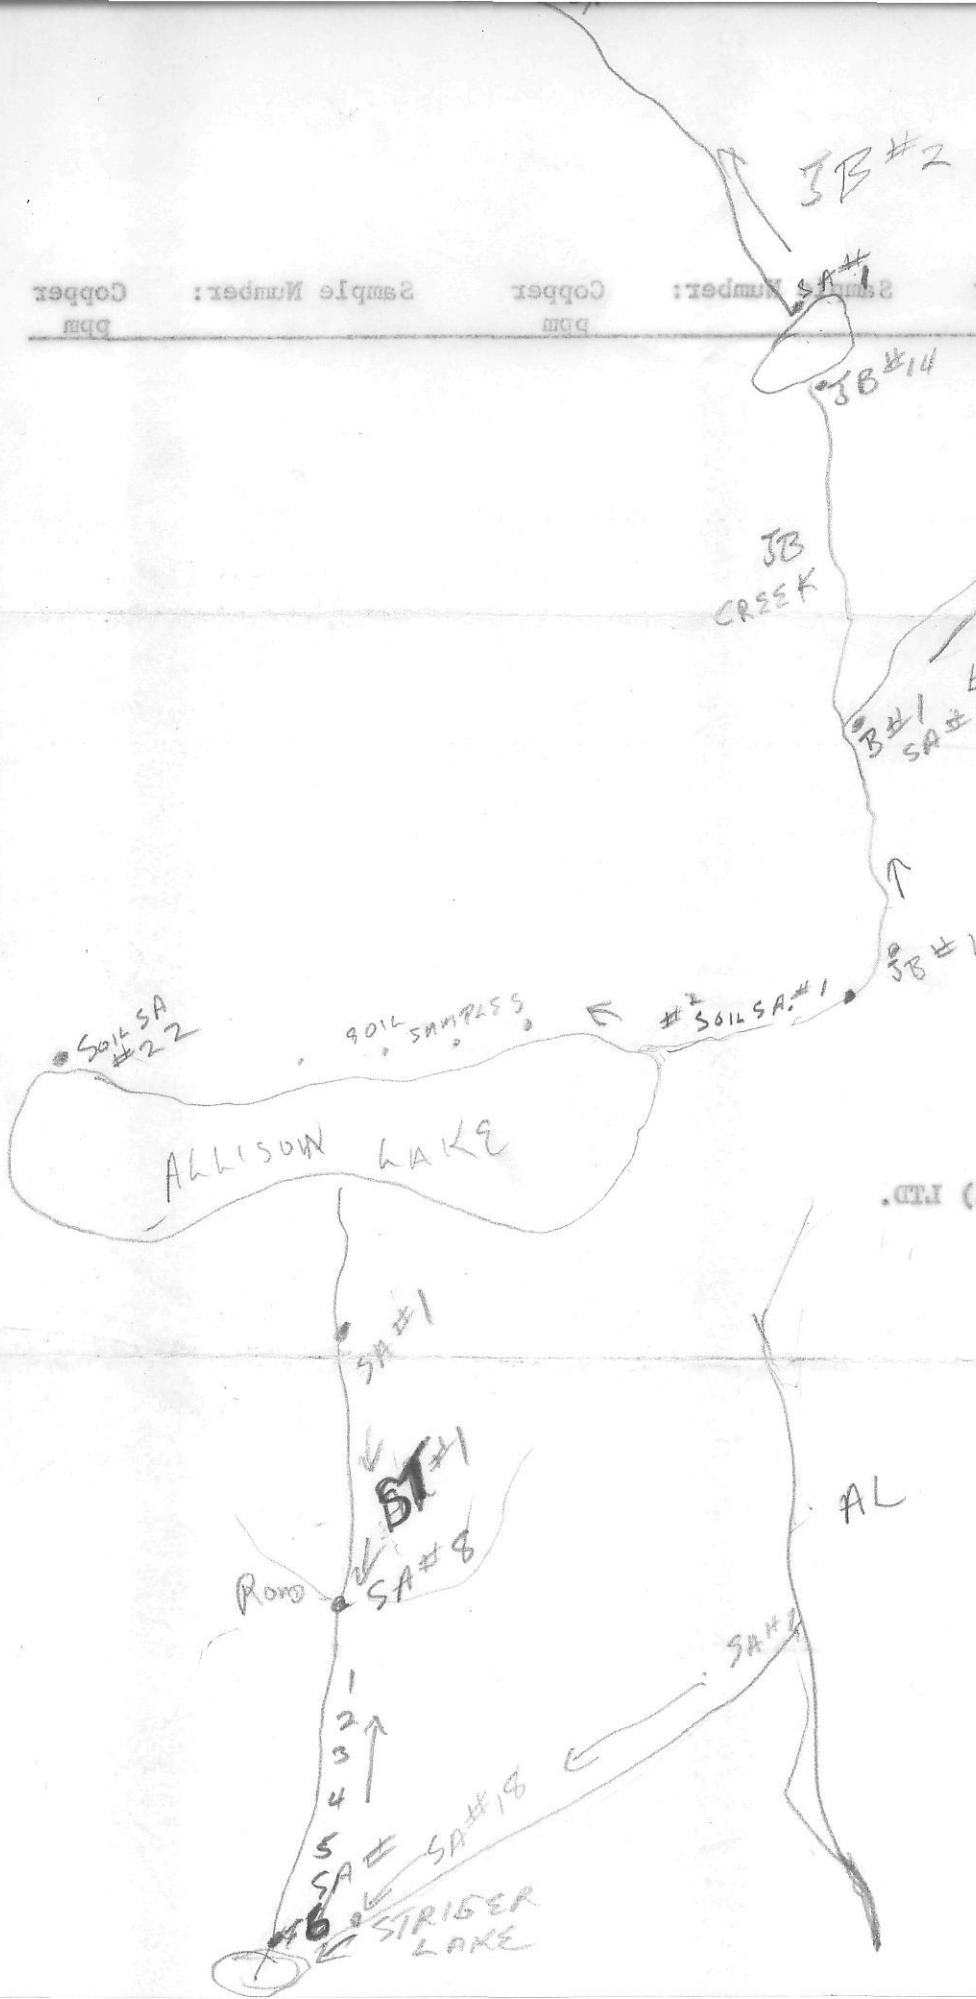 JB #2
SA #1
Copper
ppm
Sample Number:
Copper
ppm
Sample Number:
JB #14
JB
CREEK
B #1
SA #
JB #1
#2 SOIL SA. #1
SOIL SAMPLES
SOIL SA
#22
ALLISON LAKE
) LTD.
SA #1
ST #1
AL
SA #8
ROAD
SA #1
1
2
3
4
5
SA #18
SA #
6
STRIGER
LAKE